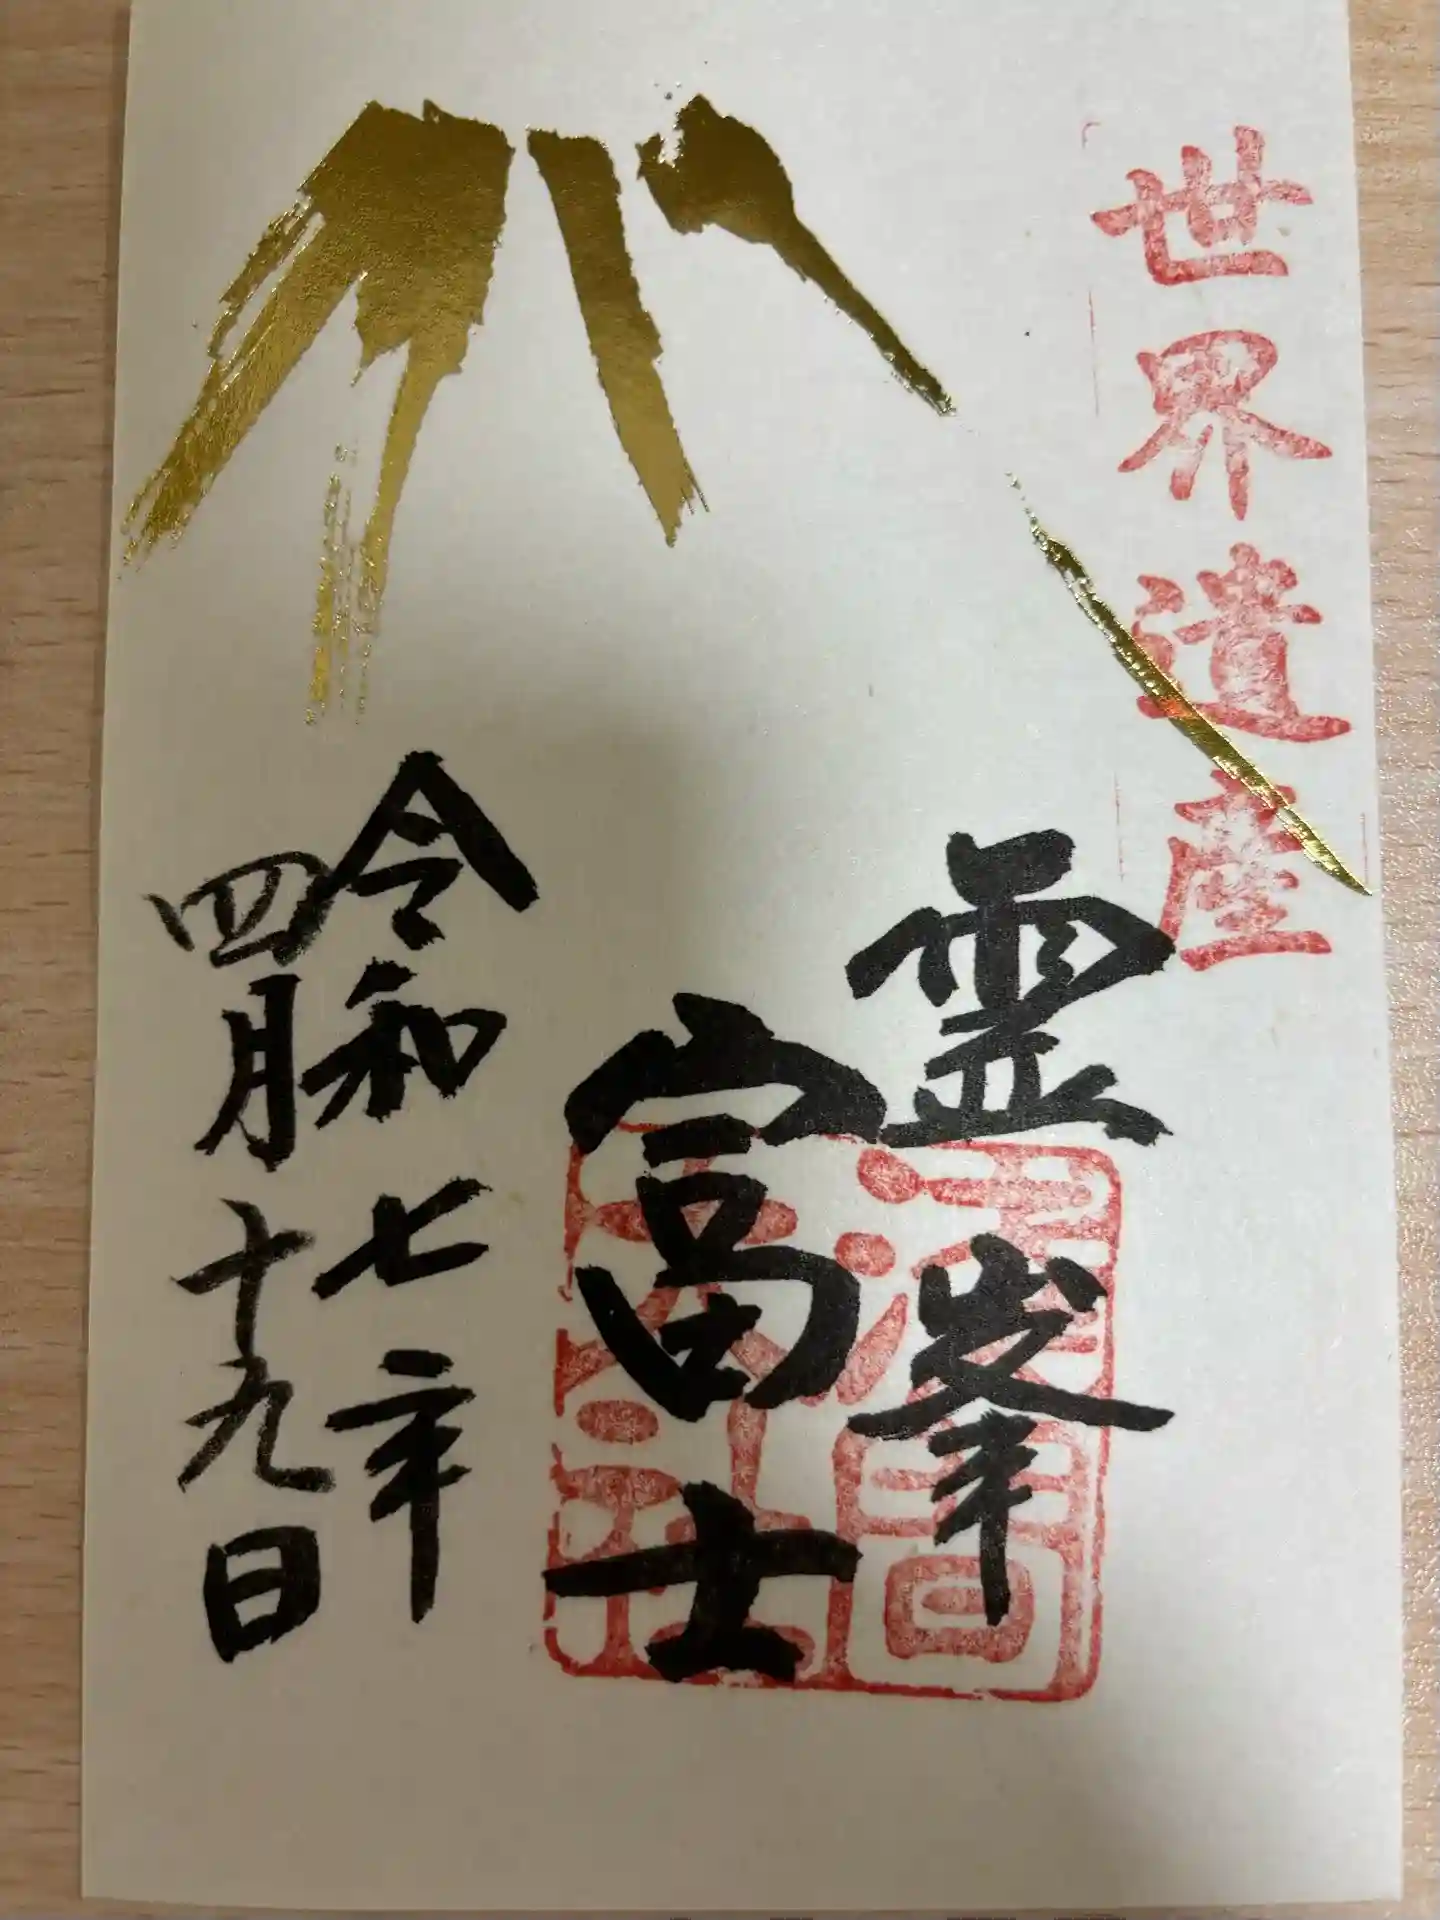 世界遺産
霊峯
富士
浅間
大社
令和七年
四月十九日